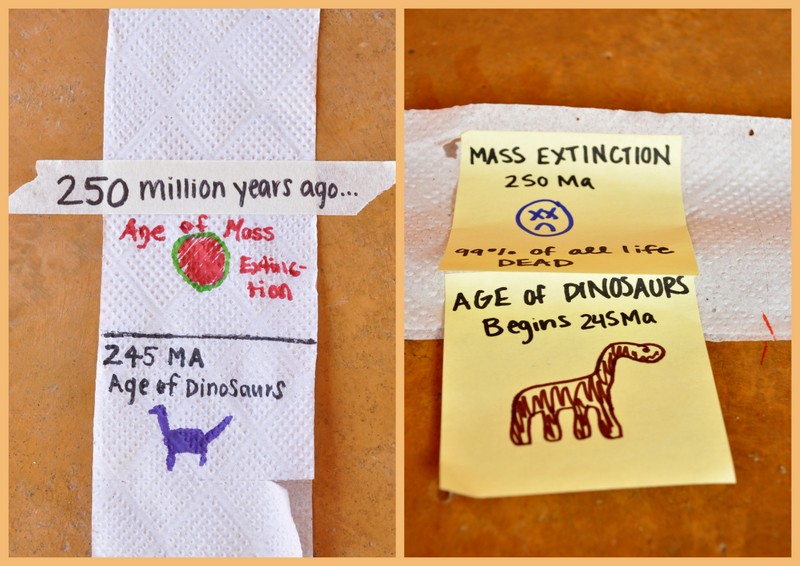 250 million years ago...
Age of Mass
Extinc-
tion
245 MA
Age of Dinosaurs
MASS EXTINCTION
250 Ma
99% of all life
DEAD
AGE of DINOSAURS
Begins 245 Ma